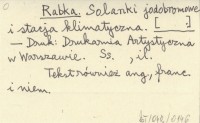 Rabka. Solanki jodobromowe
i stacja klimatyczna. [ ]
— Druk: Drukarnia Artystyczna
w Warszawie. Ss. , il.
Tekst również ang, franc.
i niem.